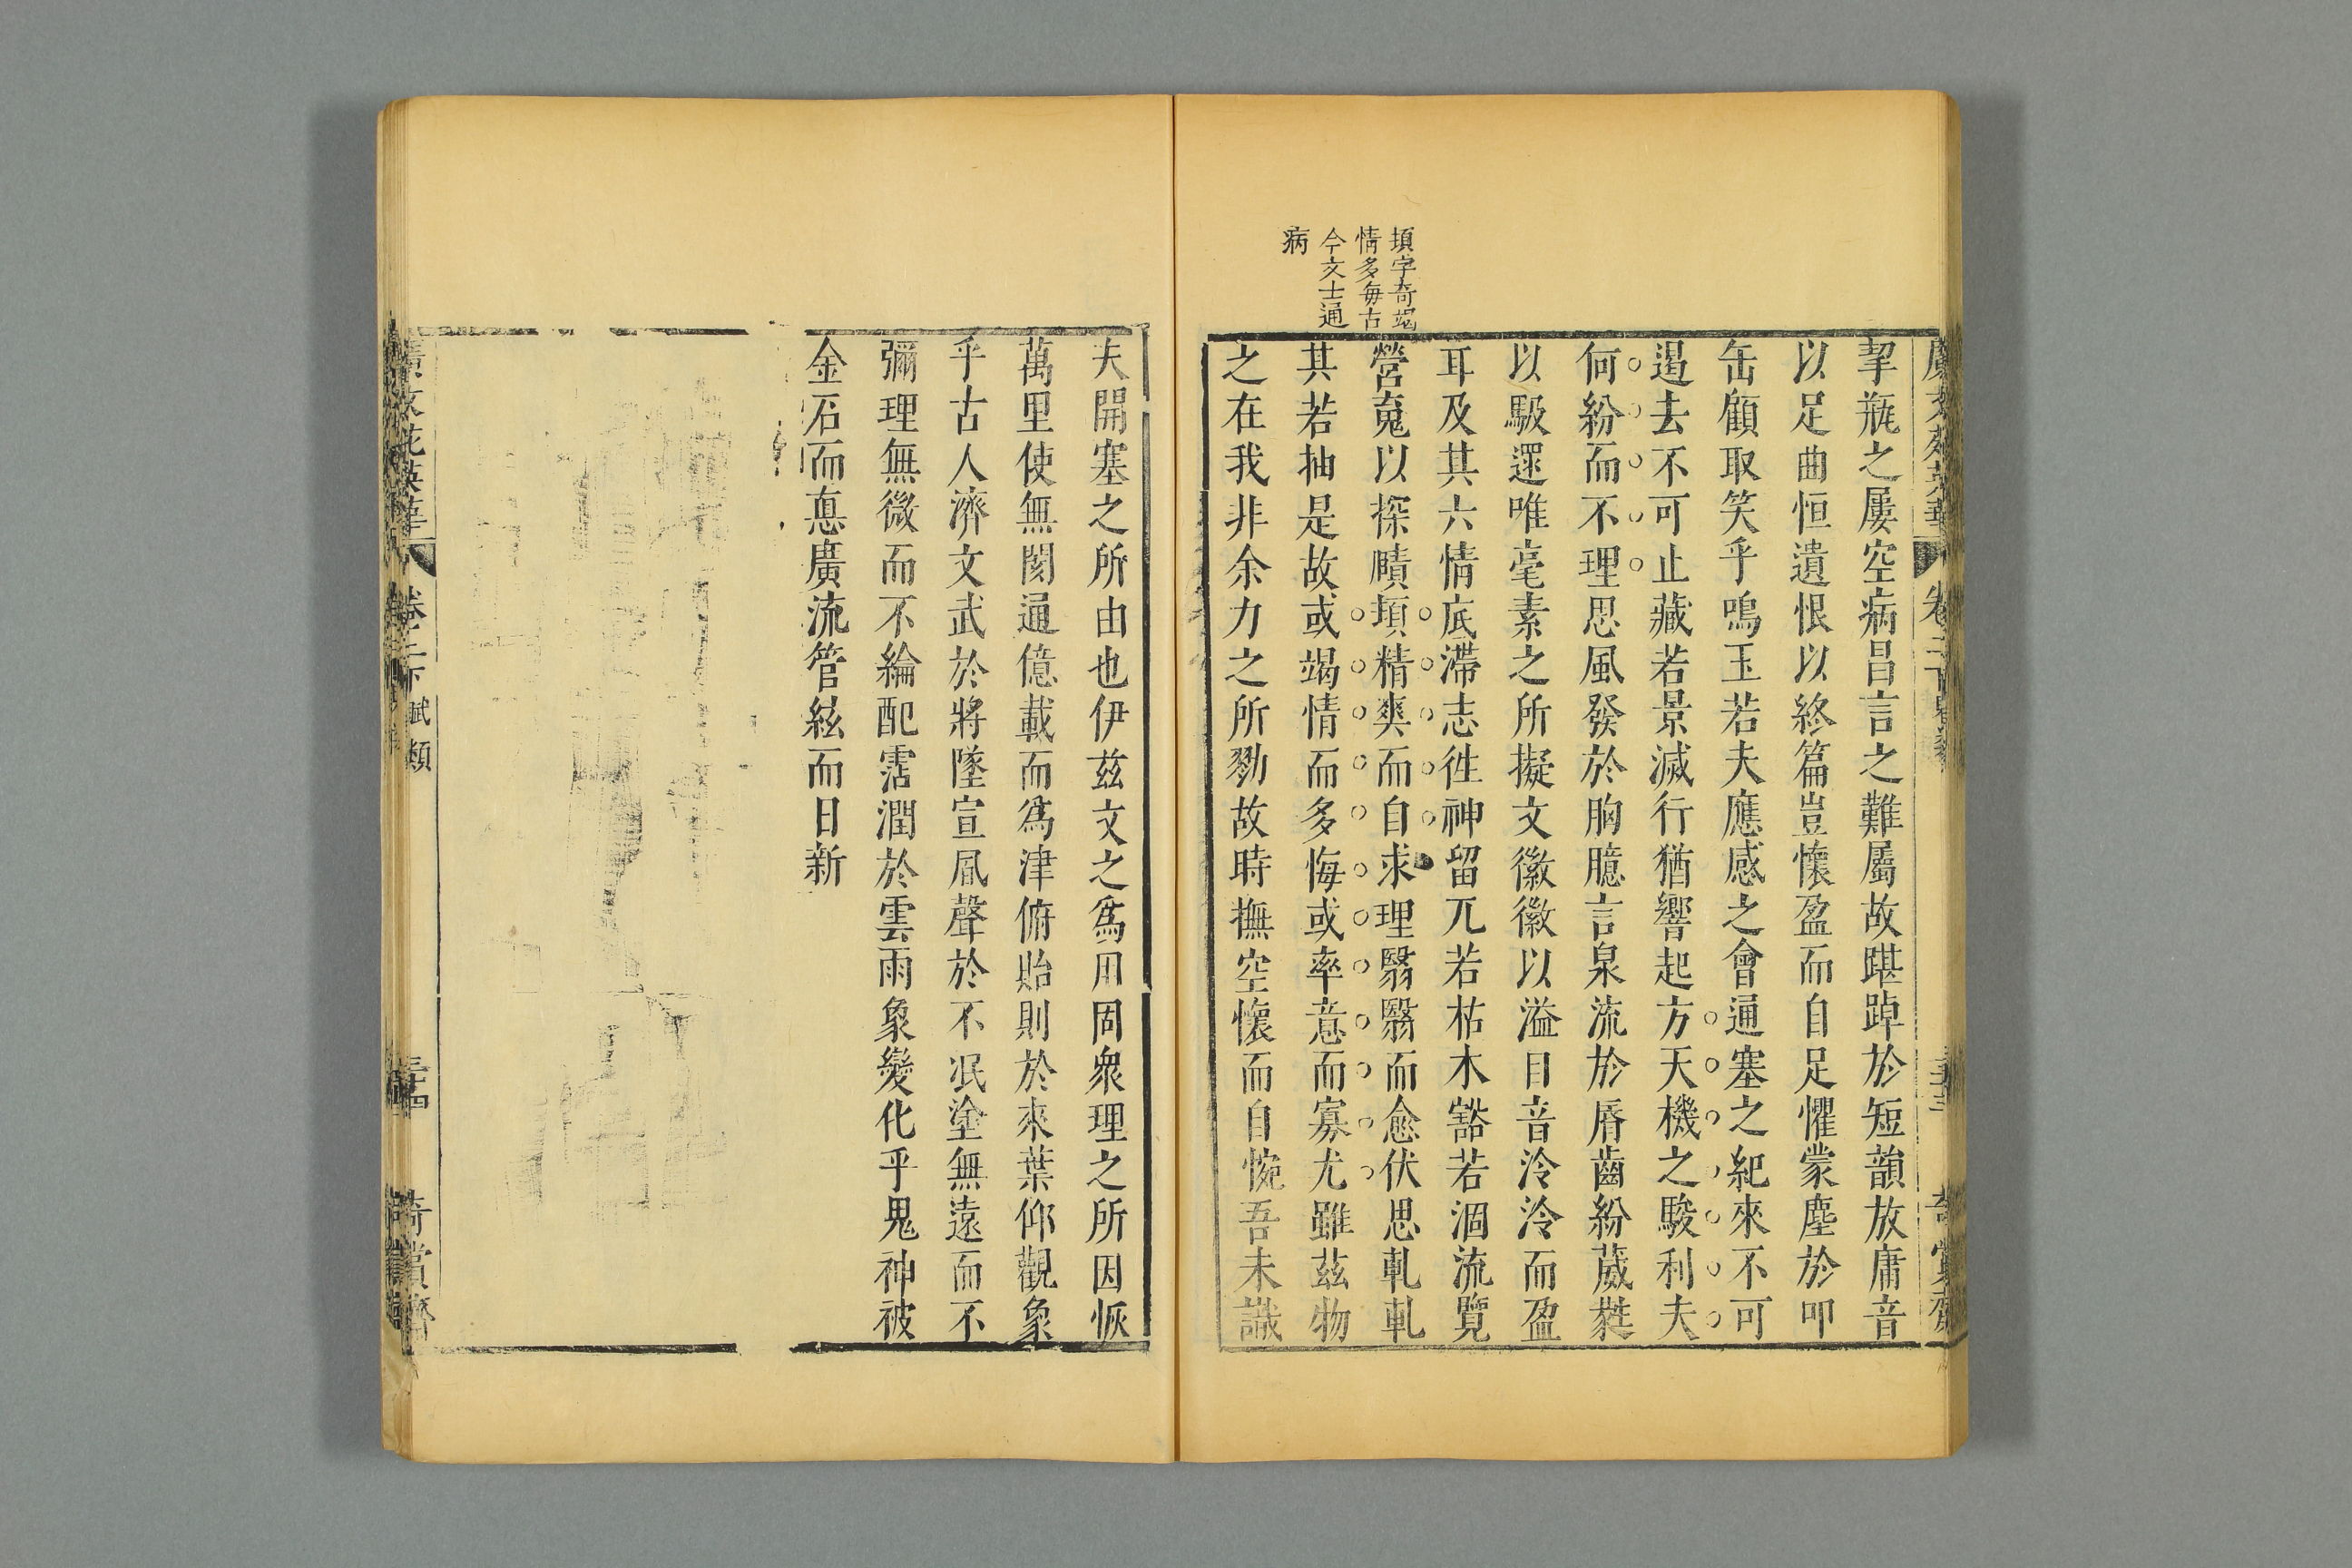 頊字奇竭
情多每古
今文士通
病
挈瓶之屢空病昌言之難屬故踸踔於短韻放庸音
以足曲恒遺恨以終篇豈懷盈而自足懼蒙塵於叩
缶顧取笑乎鳴玉若夫應感之會通塞之紀來不可
遏去不可止藏若景滅行猶響起方天機之駿利夫
何紛而不理思風發於胸臆言泉流於唇齒紛葳蕤
以馺遝唯毫素之所擬文徽徽以溢目音泠泠而盈
耳及其六情底滯志徃神留兀若枯木豁若涸流覽
營䰟以探賾頊精爽而自求理翳翳而愈伏思軋軋
其若抽是故或竭情而多悔或率意而寡尤雖茲物
之在我非余力之所勠故時撫空懷而自惋吾未識
夫開塞之所由也伊茲文之爲用固衆理之所因恢
萬里使無閡通億載而爲津俯貽則於來葉仰觀象
乎古人濟文武於將墜宣風聲於不泯塗無遠而不
彌理無微而不綸配霑潤於雲雨象變化乎鬼神被
金石而惪廣流管絃而日新
廣文苑英華 卷二下 賦類 三十四 奇賞齋